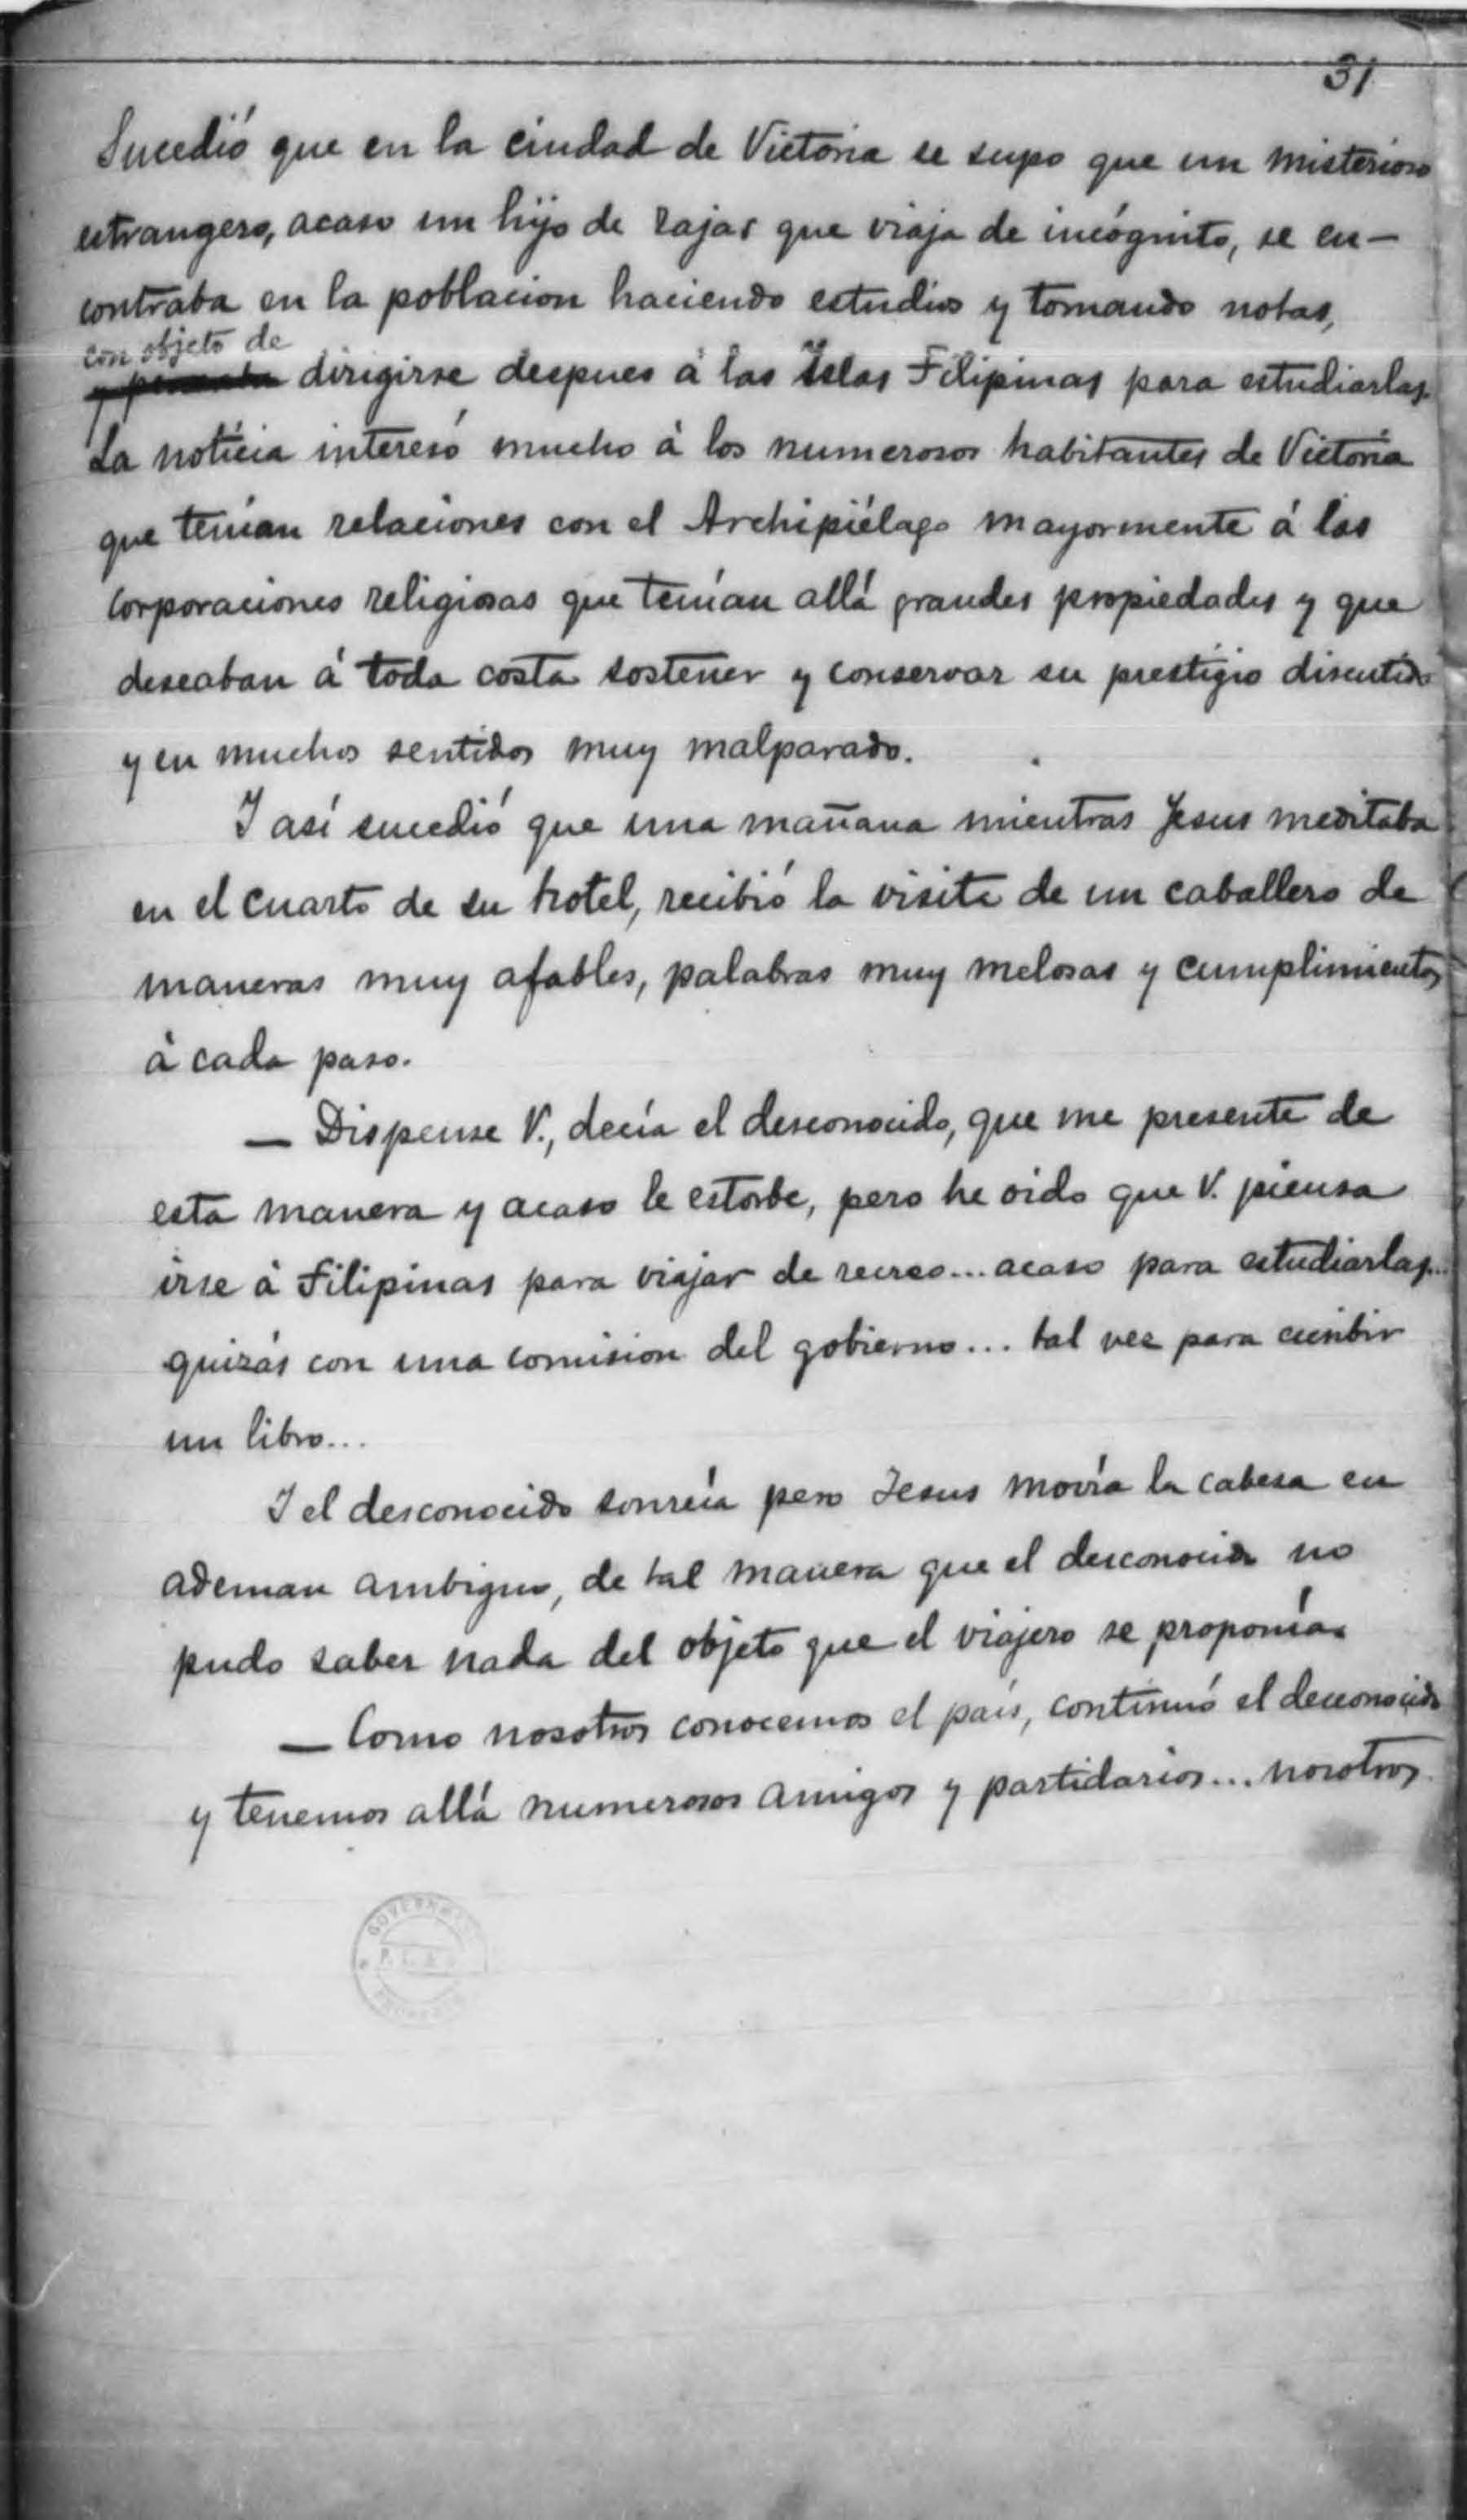 31
Sucedió que en la ciudad de Victoria se supo que un misterioso
estrangero, acaso un hijo de rajás que viaja de incógnito, se en-
contraba en la poblacion haciendo estudios y tomando notas,
con objeto de
dirigirse despues á las Islas Filipinas para estudiarlas.
La noticia interesó mucho á los numerosos habitantes de Victoria
que tenían relaciones con el Archipiélago mayormente á las
corporaciones religiosas que tenían allá grandes propiedades y que
deseaban á toda costa sostener y conservar su prestigio discutido
y en muchos sentidos muy malparado.
I así sucedió que una mañana mientras Jesus meditaba
en el cuarto de su hotel, recibió la visita de un caballero de
maneras muy afables, palabras muy melosas y cumplimientos
á cada paso.
— Dispense V., decía el desconocido, que me presente de
esta manera y acaso le estorbe, pero he oido que V. piensa
irse á Filipinas para viajar de recreo... acaso para estudiarlas...
quizás con una comision del gobierno... tal vez para escribir
un libro...
I el desconocido sonreía pero Jesus movía la cabesa en
ademan ambiguo, de tal manera que el desconocido no
pudo saber nada del objeto que el viajero se proponía.
— Como nosotros conocemos el país, continuó el desconocido
y tenemos allá numerosos amigos y partidarios... nosotros
GOVERNMENT